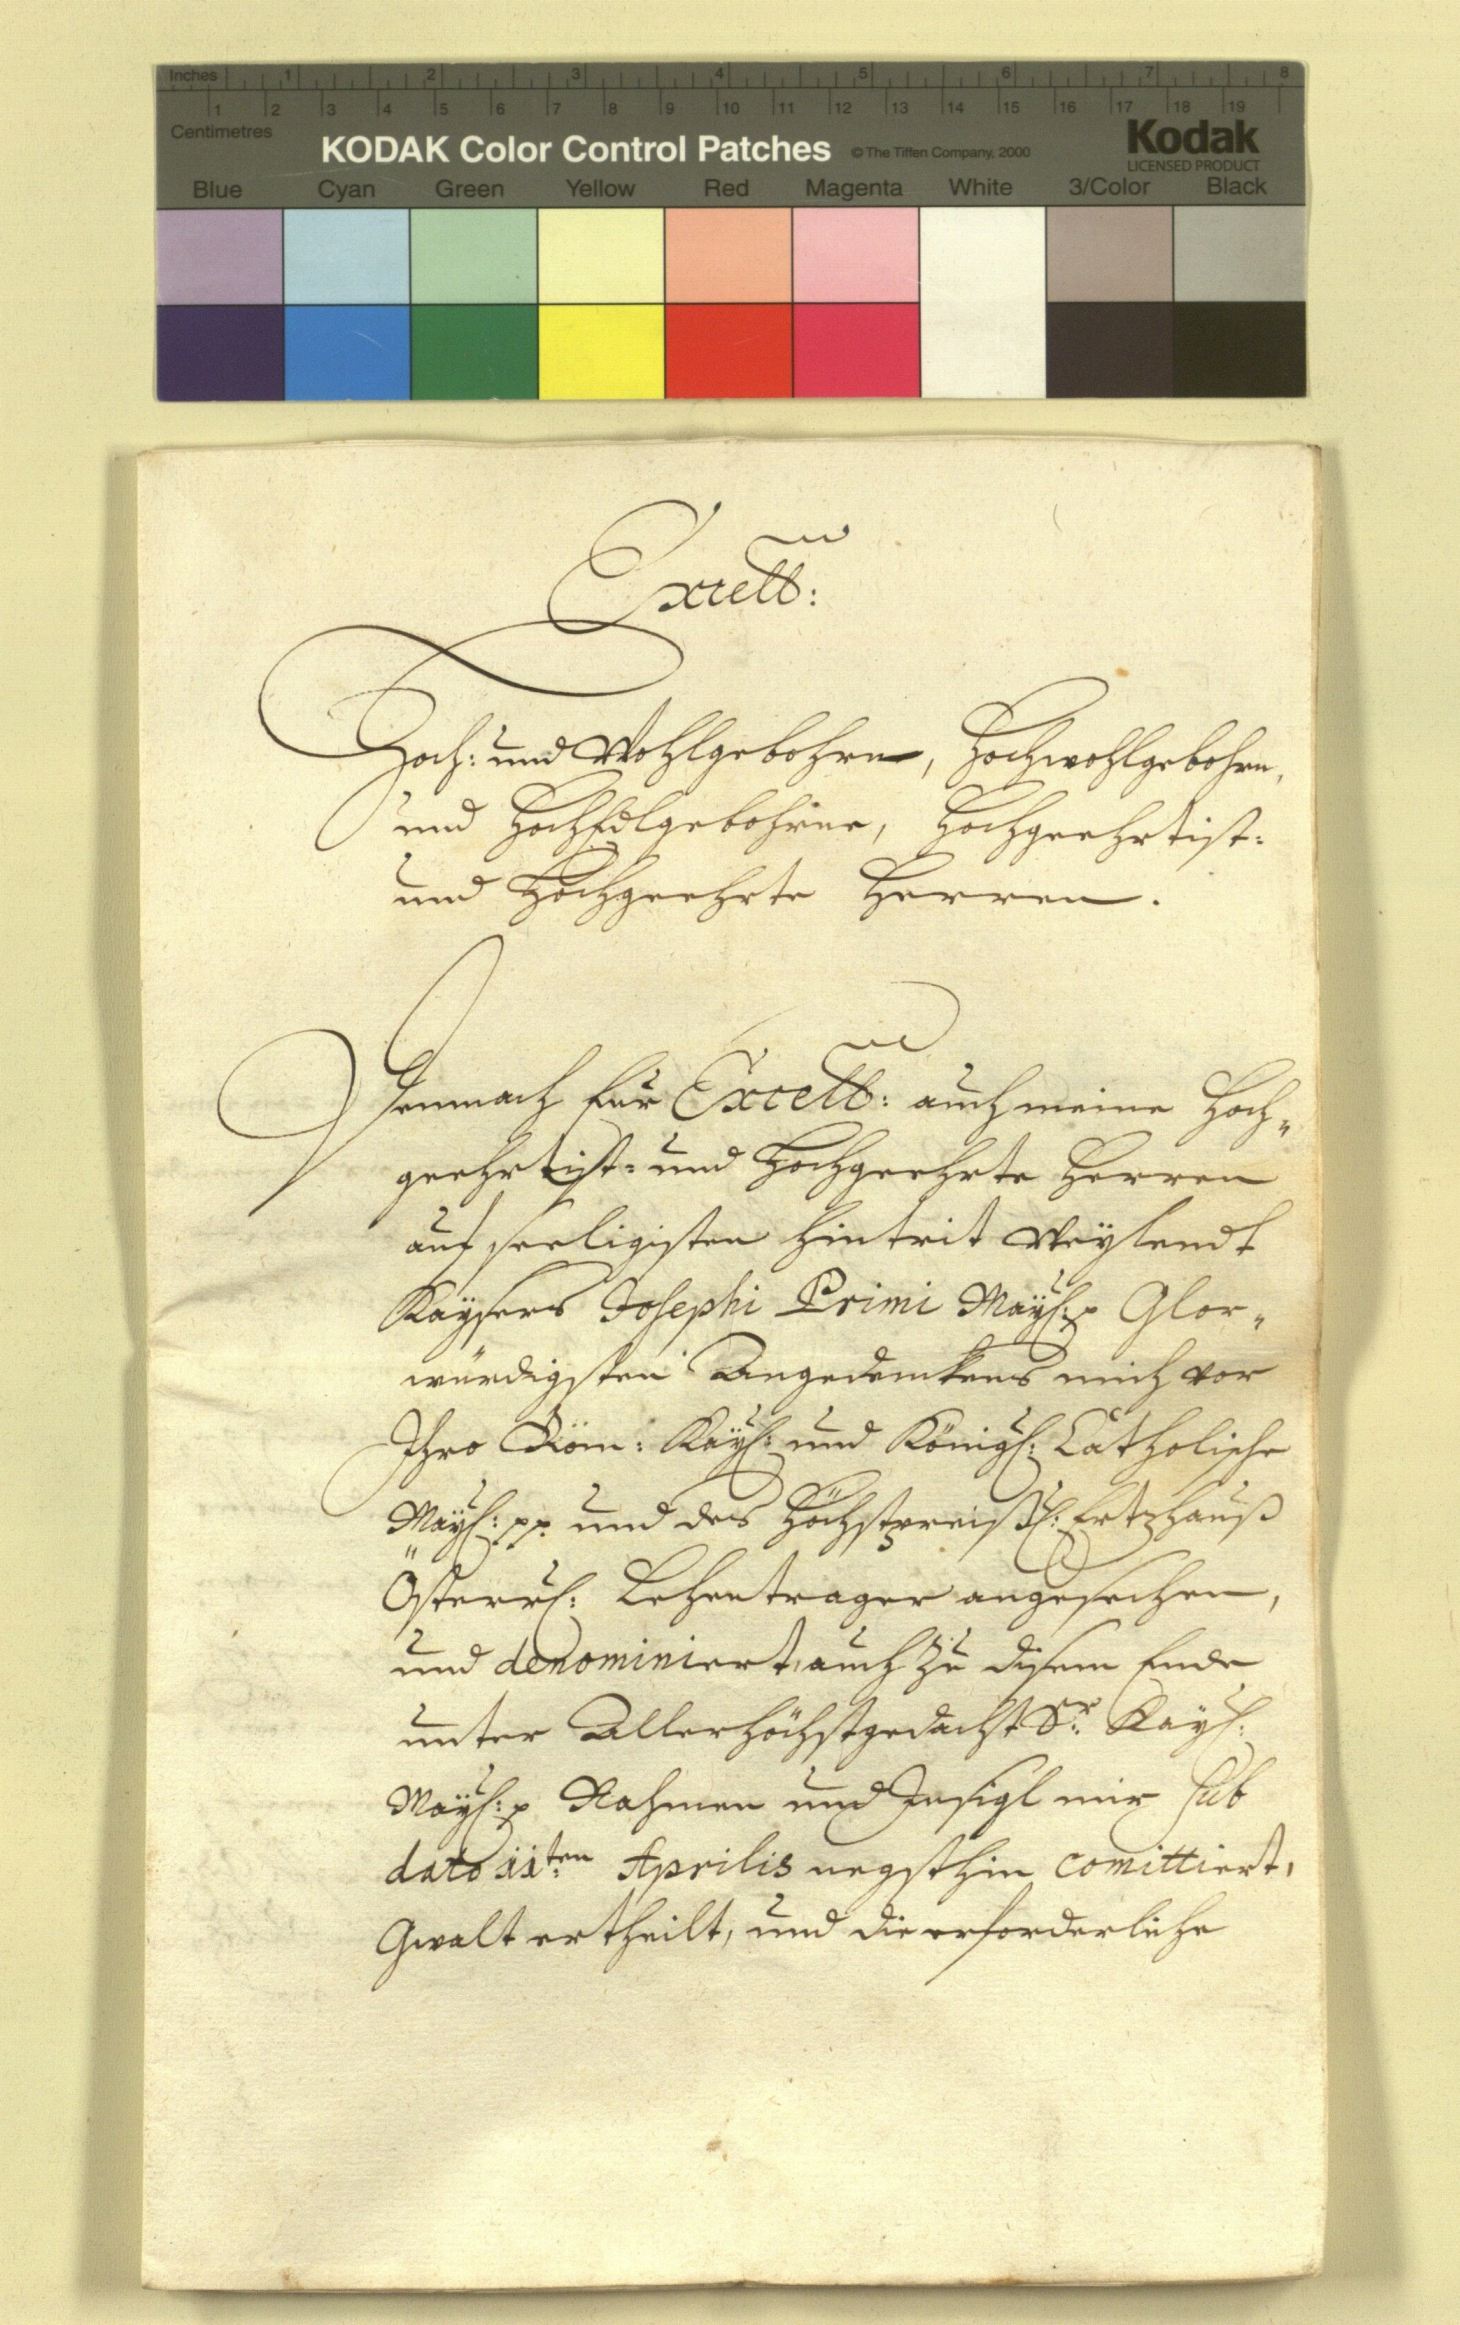 Inches 1 2 3 4 5 6 7 8
1 2 3 4 5 6 7 8 9 10 11 12 13 14 15 16 17 18 19
Centimetres
KODAK Color Control Patches © The Tiffen Company, 2000 Kodak
LICENSED PRODUCT
Blue Cyan Green Yellow Red Magenta White 3/Color Black
Excell:
Hoch: und Wohlgebohrne, Hochwohlgebohrn,
und HochEdlgebohrne, Hochgeehrtist:
und Hochgeehrte Herren.
Demnach Eur Excell: auch meine Hoch„
geehrtist: und Hochgeehrte Herren
auf seeligisten hintrit Weylendt
Kaysers Josephi Primi May: Glor„
würdigsten Angedenkens mich vor
Ihro Röm: Kayl: und Königl: Catholische
May: pp. und des Höchstpreißl: Ertzhauß
Österrl: Lehentrager angesechen,
und denominiert, auch zu disem Ende
unter Allerhöchstgedacht Sr: Kayl:
May: Nahmen und Insigl mir sub
dato 11ten Aprilis negsthin comittiert,
Gwalt ertheilt, und die erforderliche